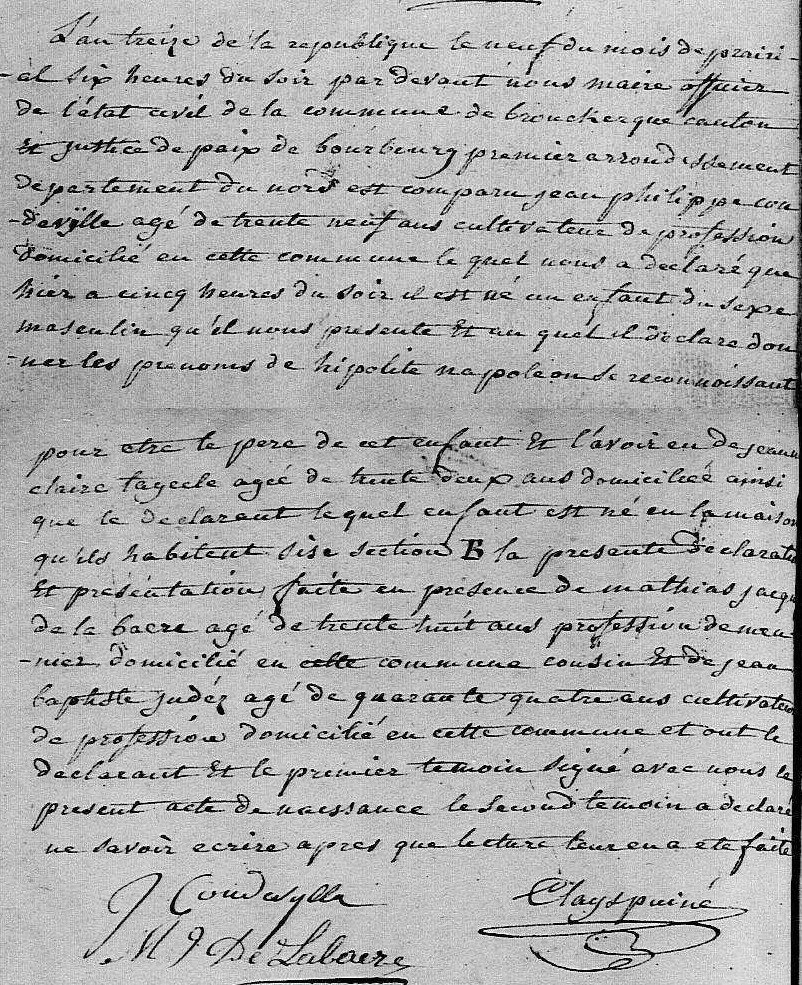 L'an treize de la republique le neuf du mois de prairi-
-al six heures du soir par devant nous maire officier
de l'état civil de la commune de brouckerque canton
Et justice de paix de bourbourg premier arrondissement
departement du nord est comparu jean philippe cou
-devylle agé de trente neuf ans cultivateur de profession
domicilié en cette commune le quel nous a declaré que
hier a cincq heures du soir il est né un enfant du sexe
masculin qu'il nous presente Et au quel il declare don
-ner les prenoms de hipolite napoleon se reconnoissant
pour etre le pere de cet enfant Et l'avoir eu de jeann
claire agée de trente deux ans domiciliée ainsi
que le declarant lequel enfant est né en la maison
qu'ils habitent sise section B la presente declaratio
Et présentation faite en présence de mathias jacqu
de la baere agé de trente huit ans profession de meu
-nier domicilié en cette commune cousin Et de jean
baptiste judéz agé de quarante quatre ans cultivateur
de profession domicilié en cette commune et ont le
declarant Et le premier temoin signé avec nous le
present acte de naissance le second temoin a declaré
ne savoir ecrire apres que lecture leur en a ete faite
J Coudevylle
Clayspuiné
M J De Labaere